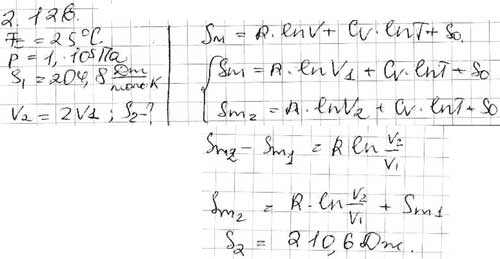 2. 126.
t = 25°C
P = 1, · 10⁵ Па
S₁ = 204,8 Дж/моль·К
V₂ = 2V₁ ; S₂-?
Sₘ = R·lnV + Cᵥ·lnT + S₀.
Sₘ = R·lnV₁ + Cᵥ·lnT + S₀
Sₘ₂ = R·lnV₂ + Cᵥ·lnT + S₀
Sₘ₂ - Sₘ₁ = R ln V₂/V₁
Sₘ₂ = R·ln V₂/V₁ + Sₘ₁
S₂ = 210,6 Дж.